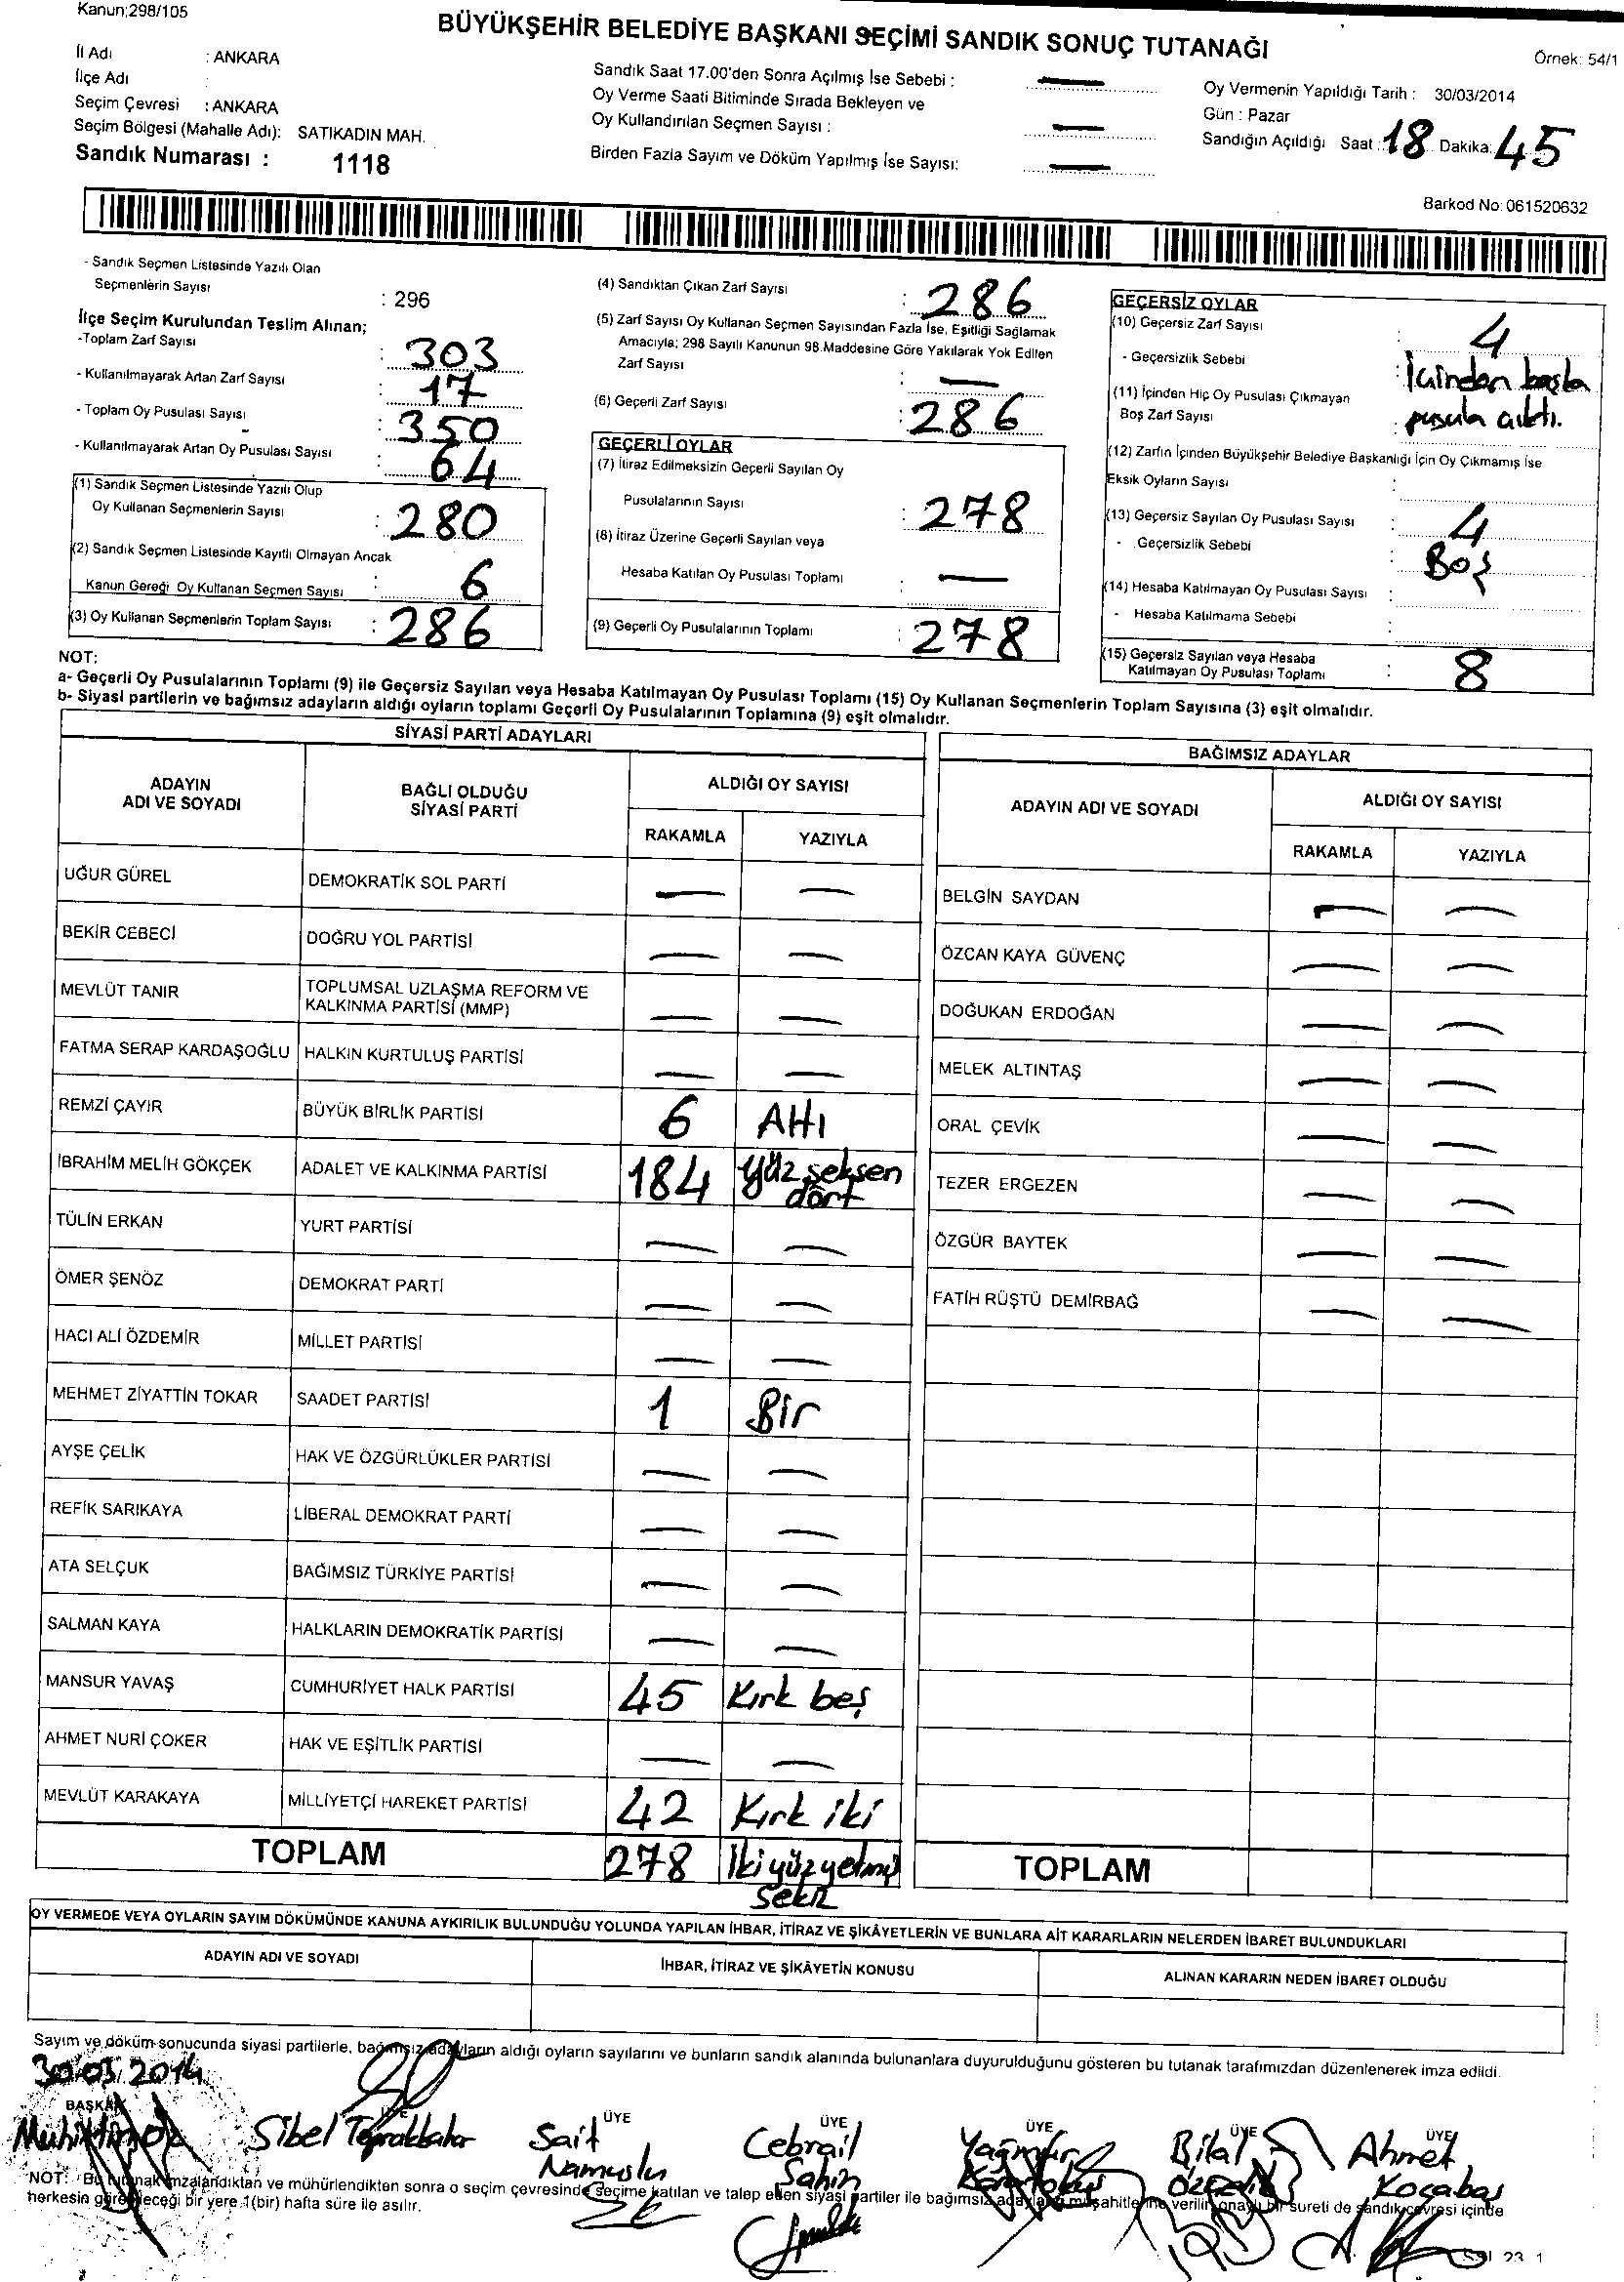 Kanun;298/105
BÜYÜKŞEHİR BELEDİYE BAŞKANI SEÇİMİ SANDIK SONUÇ TUTANAĞI
Örnek: 54/1
İl Adı : ANKARA
İlçe Adı :
Seçim Çevresi : ANKARA
Seçim Bölgesi (Mahalle Adı): SATIKADIN MAH.
Sandık Numarası : 1118
Sandık Saat 17.00'den Sonra Açılmış İse Sebebi : —
Oy Verme Saati Bitiminde Sırada Bekleyen ve
Oy Kullandırılan Seçmen Sayısı : —
Birden Fazla Sayım ve Döküm Yapılmış İse Sayısı: —
Oy Vermenin Yapıldığı Tarih : 30/03/2014
Gün : Pazar
Sandığın Açıldığı Saat : 18 Dakika: 45
Barkod No: 061520632
- Sandık Seçmen Listesinde Yazılı Olan
Seçmenlerin Sayısı : 296
İlçe Seçim Kurulundan Teslim Alınan;
-Toplam Zarf Sayısı : 303
- Kullanılmayarak Artan Zarf Sayısı : 17
- Toplam Oy Pusulası Sayısı : 350
- Kullanılmayarak Artan Oy Pusulası Sayısı : 64
(1) Sandık Seçmen Listesinde Yazılı Olup
Oy Kullanan Seçmenlerin Sayısı : 280
(2) Sandık Seçmen Listesinde Kayıtlı Olmayan Ancak
Kanun Gereği Oy Kullanan Seçmen Sayısı : 6
(3) Oy Kullanan Seçmenlerin Toplam Sayısı : 286
(4) Sandıktan Çıkan Zarf Sayısı : 286
(5) Zarf Sayısı Oy Kullanan Seçmen Sayısından Fazla İse, Eşitliği Sağlamak
Amacıyla; 298 Sayılı Kanunun 98.Maddesine Göre Yakılarak Yok Edilen
Zarf Sayısı : —
(6) Geçerli Zarf Sayısı : 286
GEÇERLİ OYLAR
(7) İtiraz Edilmeksizin Geçerli Sayılan Oy
Pusulalarının Sayısı : 278
(8) İtiraz Üzerine Geçerli Sayılan veya
Hesaba Katılan Oy Pusulası Toplamı : —
(9) Geçerli Oy Pusulalarının Toplamı : 278
GEÇERSİZ OYLAR
(10) Geçersiz Zarf Sayısı : 4
- Geçersizlik Sebebi : İçinden başka
(11) İçinden Hiç Oy Pusulası Çıkmayan
Boş Zarf Sayısı : pusula çıktı.
(12) Zarfın İçinden Büyükşehir Belediye Başkanlığı İçin Oy Çıkmamış İse
Eksik Oyların Sayısı :
(13) Geçersiz Sayılan Oy Pusulası Sayısı : 4
- Geçersizlik Sebebi : Boş
(14) Hesaba Katılmayan Oy Pusulası Sayısı :
- Hesaba Katılmama Sebebi :
(15) Geçersiz Sayılan veya Hesaba
Katılmayan Oy Pusulası Toplamı : 8
NOT:
a- Geçerli Oy Pusulalarının Toplamı (9) ile Geçersiz Sayılan veya Hesaba Katılmayan Oy Pusulası Toplamı (15) Oy Kullanan Seçmenlerin Toplam Sayısına (3) eşit olmalıdır.
b- Siyasi partilerin ve bağımsız adayların aldığı oyların toplamı Geçerli Oy Pusulalarının Toplamına (9) eşit olmalıdır.
SİYASİ PARTİ ADAYLARI
ADAYIN ADI VE SOYADI BAĞLI OLDUĞU SİYASİ PARTİ ALDIĞI OY SAYISI
RAKAMLA YAZIYLA
UĞUR GÜREL DEMOKRATİK SOL PARTİ — —
BEKİR CEBECİ DOĞRU YOL PARTİSİ — —
MEVLÜT TANIR TOPLUMSAL UZLAŞMA REFORM VE
KALKINMA PARTİSİ (MMP) — —
FATMA SERAP KARDAŞOĞLU HALKIN KURTULUŞ PARTİSİ — —
REMZİ ÇAYIR BÜYÜK BİRLİK PARTİSİ 6 Altı
İBRAHİM MELİH GÖKÇEK ADALET VE KALKINMA PARTİSİ 184 Yüz seksen dört
TÜLİN ERKAN YURT PARTİSİ — —
ÖMER ŞENÖZ DEMOKRAT PARTİ — —
HACI ALİ ÖZDEMİR MİLLET PARTİSİ — —
MEHMET ZİYATTİN TOKAR SAADET PARTİSİ 1 Bir
AYŞE ÇELİK HAK VE ÖZGÜRLÜKLER PARTİSİ — —
REFİK SARIKAYA LİBERAL DEMOKRAT PARTİ — —
ATA SELÇUK BAĞIMSIZ TÜRKİYE PARTİSİ — —
SALMAN KAYA HALKLARIN DEMOKRATİK PARTİSİ — —
MANSUR YAVAŞ CUMHURİYET HALK PARTİSİ 45 Kırk beş
AHMET NURİ ÇOKER HAK VE EŞİTLİK PARTİSİ — —
MEVLÜT KARAKAYA MİLLİYETÇİ HAREKET PARTİSİ 42 Kırk iki
TOPLAM 278 İki yüz yetmiş sekiz
BAĞIMSIZ ADAYLAR
ADAYIN ADI VE SOYADI ALDIĞI OY SAYISI
RAKAMLA YAZIYLA
BELGİN SAYDAN — —
ÖZCAN KAYA GÜVENÇ — —
DOĞUKAN ERDOĞAN — —
MELEK ALTINTAŞ — —
ORAL ÇEVİK — —
TEZER ERGEZEN — —
ÖZGÜR BAYTEK — —
FATİH RÜŞTÜ DEMİRBAĞ — —
TOPLAM
OY VERMEDE VEYA OYLARIN SAYIM DÖKÜMÜNDE KANUNA AYKIRILIK BULUNDUĞU YOLUNDA YAPILAN İHBAR, İTİRAZ VE ŞİKÂYETLERİN VE BUNLARA AİT KARARLARIN NELERDEN İBARET BULUNDUKLARI
ADAYIN ADI VE SOYADI İHBAR, İTİRAZ VE ŞİKÂYETİN KONUSU ALINAN KARARIN NEDEN İBARET OLDUĞU
Sayım ve döküm sonucunda siyasi partilerle, bağımsız adayların aldığı oyların sayılarını ve bunların sandık alanında bulunanlara duyurulduğunu gösteren bu tutanak tarafımızdan düzenlenerek imza edildi.
30.03.2014
BAŞKAN ÜYE ÜYE ÜYE ÜYE ÜYE ÜYE
Sibel Toprakbaha Sait Cebrail Yağmur Bilal Ahmet
Namuslu Şahin Kocabaş
NOT: Bu tutanak imzalandıktan ve mühürlendikten sonra o seçim çevresinde seçime katılan ve talep eden siyasi partiler ile bağımsız adayların müşahitlerine verilir, onaylı bir sureti de sandık çevresi içinde
herkesin görebileceği bir yere 1(bir) hafta süre ile asılır.
23 1